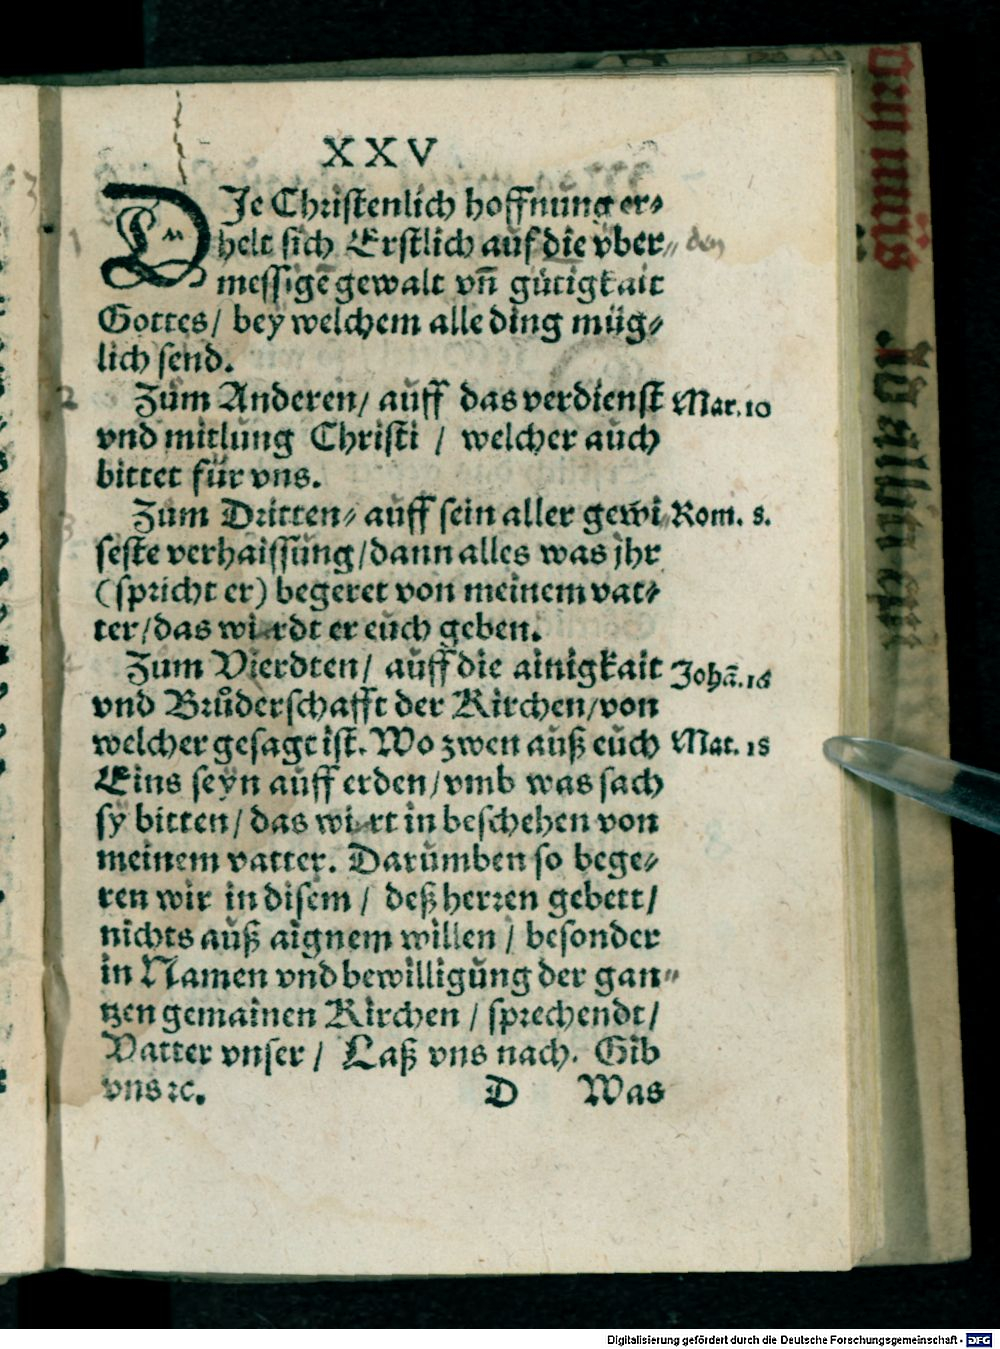 XXV
DJe Christenlich hoffnung er⸗
helt sich Erstlich auf die vber⸗ den
messigē gewalt vn̄ gütigkait
Gottes/ bey welchem alle ding müg⸗
lich send.
2 Zům Anderen/ aůff das verdienst Mar. 10
vnd mitlung Christi / welcher aůch
bittet für vns.
3 Zům Dritten/ aůff sein aller gewi⸗ Rom. 8.
seste verhaissůng/dann alles was jhr
(spricht er) begeret von meinem vat⸗
ter/das wirdt er eůch geben.
4 Zům Vierdten/ aůff die ainigkait Johā. 16
vnd Brůderschafft der Kirchen/von
welcher gesagt ist. Wo zwen aůß eůch Mat. 18
Eins seyn aůff erden/vmb was sach
sÿ bitten/ das wirt in beschehen von
meinem vatter. Darůmben so bege⸗
ren wir in disem / deß herren gebett/
nichts aůß aignem willen / besonder
in Namen vnd bewilligůng der gan⸗
tzen gemainen Kirchen / sprechendt/
Vatter vnser / Laß vns nach. Gib
vns ꝛc. D Was
Digitalisierung gefördert durch die Deutsche Forschungsgemeinschaft - DFG